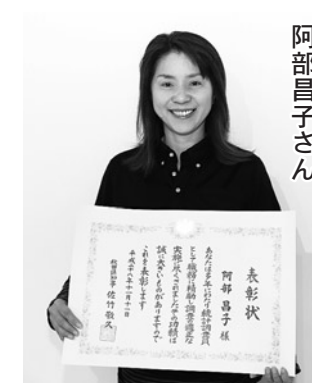 阿部昌子さん
表彰状
阿部 昌子 様
あなたは多年にわたり統計調査員
として職務に精励し調査の適正な
実施に尽くされましたその功績は
誠に大きいものがありますので
これを表彰します
平成二十八年十一月十一日
秋田県知事 佐竹 敬久